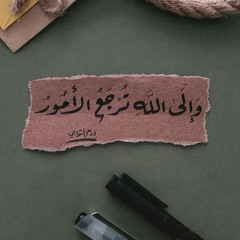 وَإِلَى اللَّهِ تُرْجَعُ الْأُمُورُ